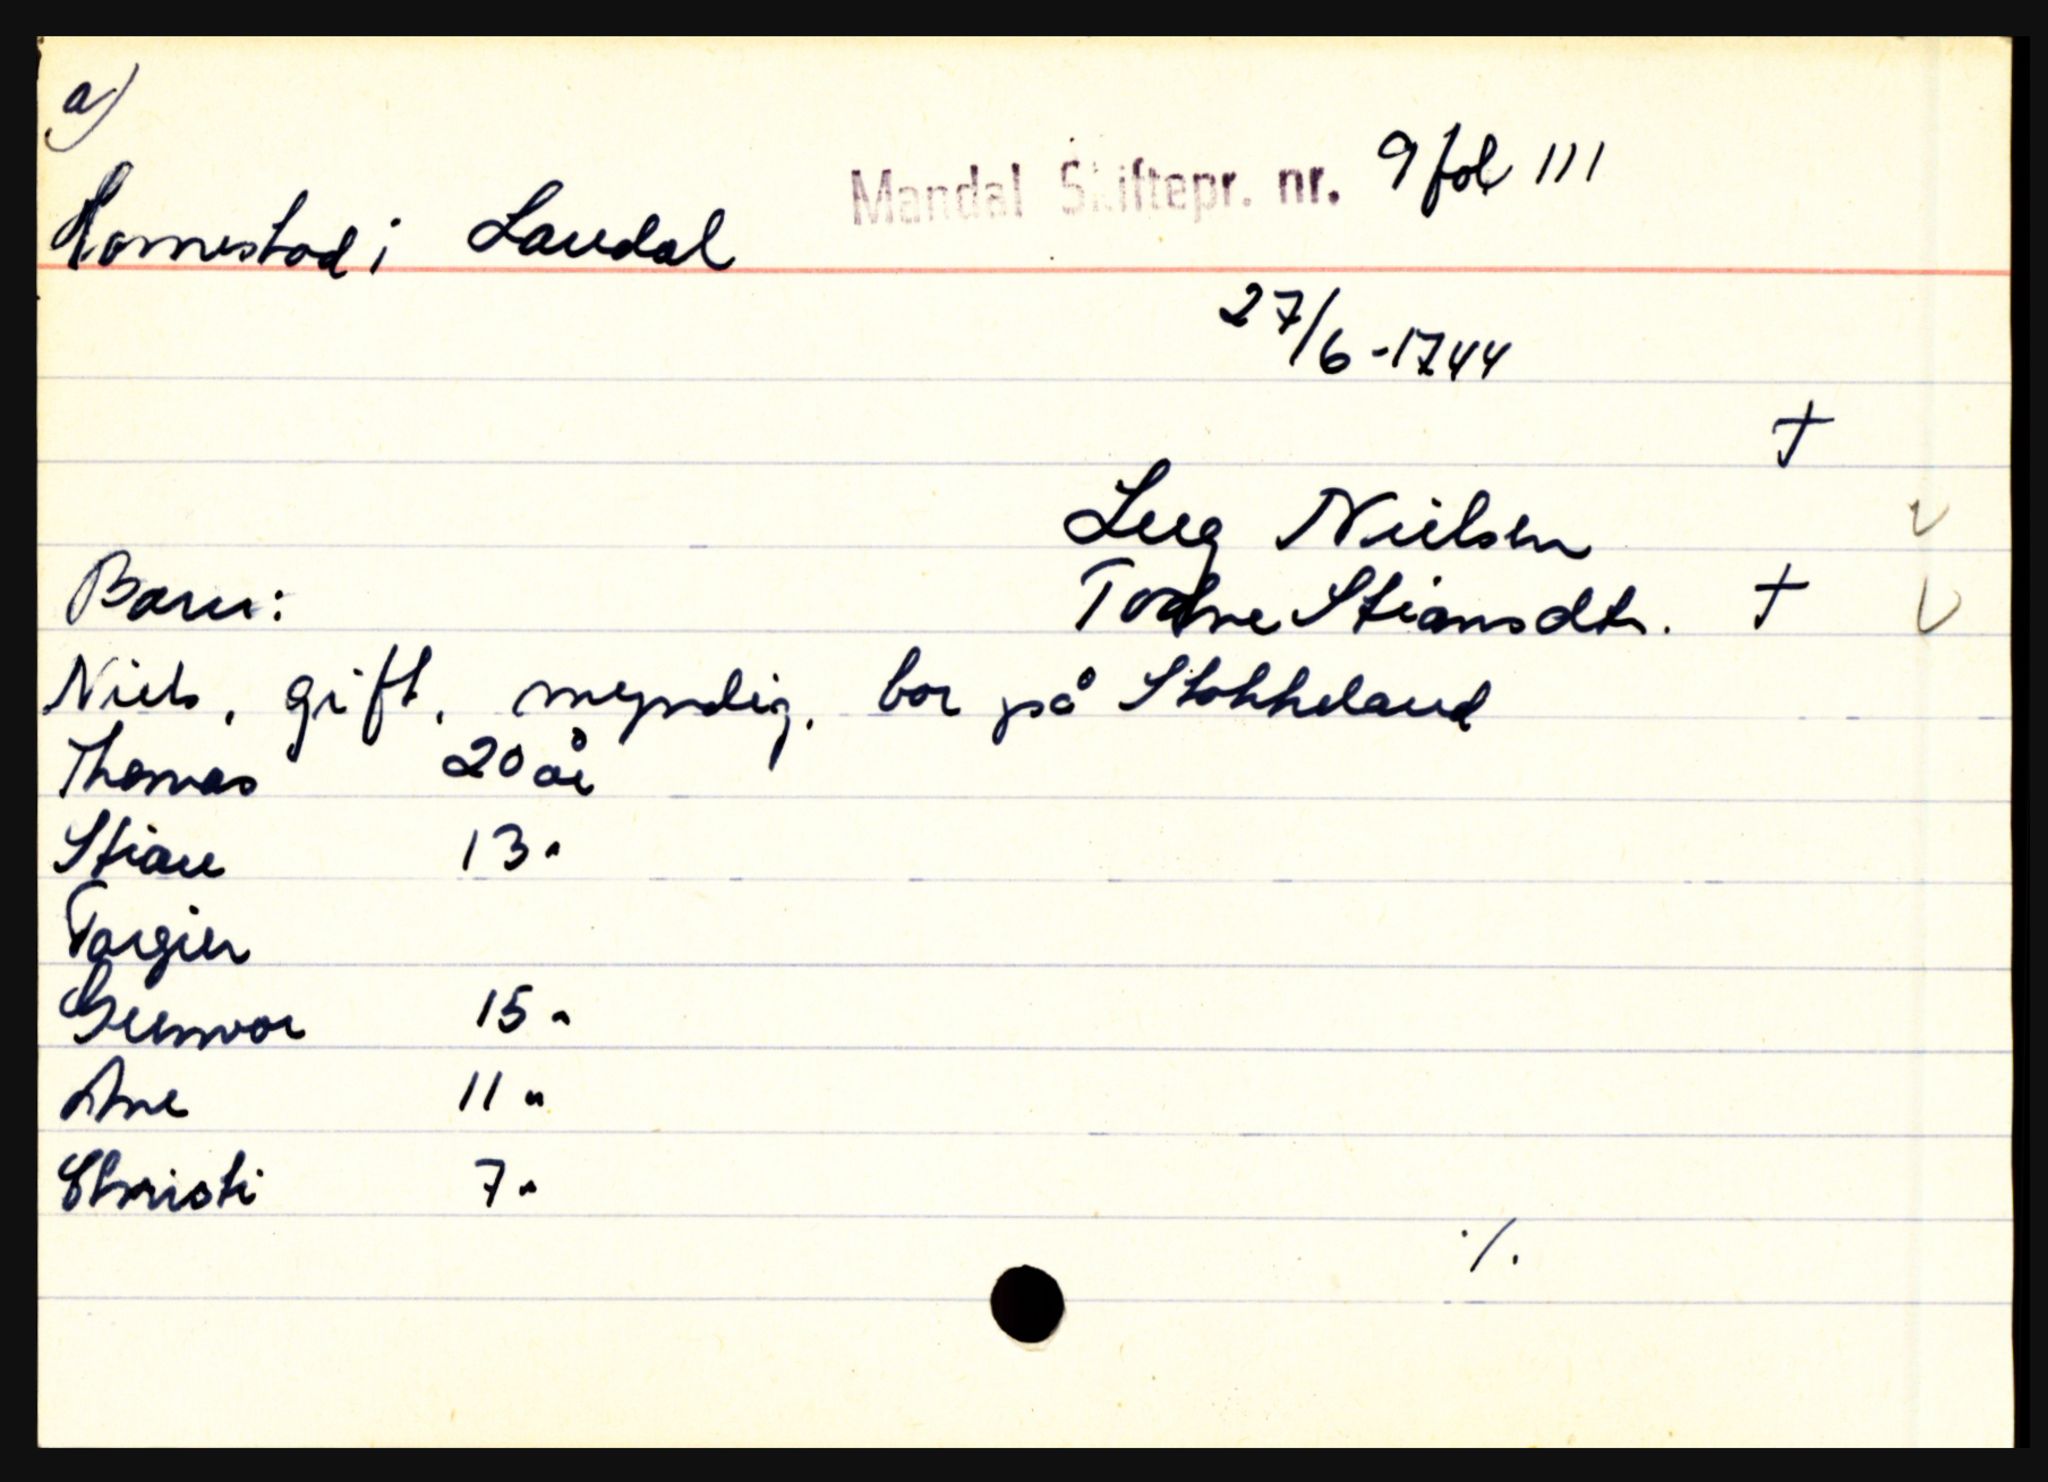 a)
Mandal Skiftepr. nr. 9 fol 111
Homestad i Laudal
27/6-1744
†
Lug Nielsen
Barn:
Todne Stiansdtr. †
Niels, gift, myndig, bor på Stokkeland
Thomas 20 år
Stian 13 "
Torgier
Gunvor 15 "
Ane 11 "
Christi 7 "
./.